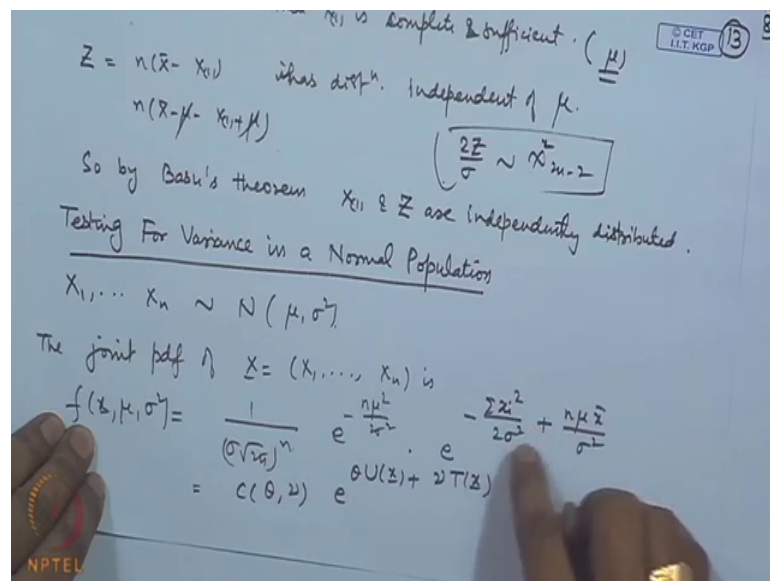 x₍₁₎ is complete & sufficient. (μ)
© CET
I.I.T. KGP
13
8
Z = n(x̄ - x₍₁₎) has distⁿ. Independent of μ.
n(x̄-μ - x₍₁₎+μ)
2Z/σ ~ χ²₂ₙ₋₂
So by Basu's theorem x₍₁₎ & Z are independently distributed.
Testing For Variance in a Normal Population
X₁,... Xₙ ~ N(μ,σ²).
The joint pdf of X = (X₁,..., Xₙ) is
f(x,μ,σ²) = 1/(σ√2π)ⁿ e^(-nμ²/2σ²) . e^(-Σxᵢ²/2σ² + nμx̄/σ²)
= c(θ,ν) e^(θU(x) + νT(x))
NPTEL